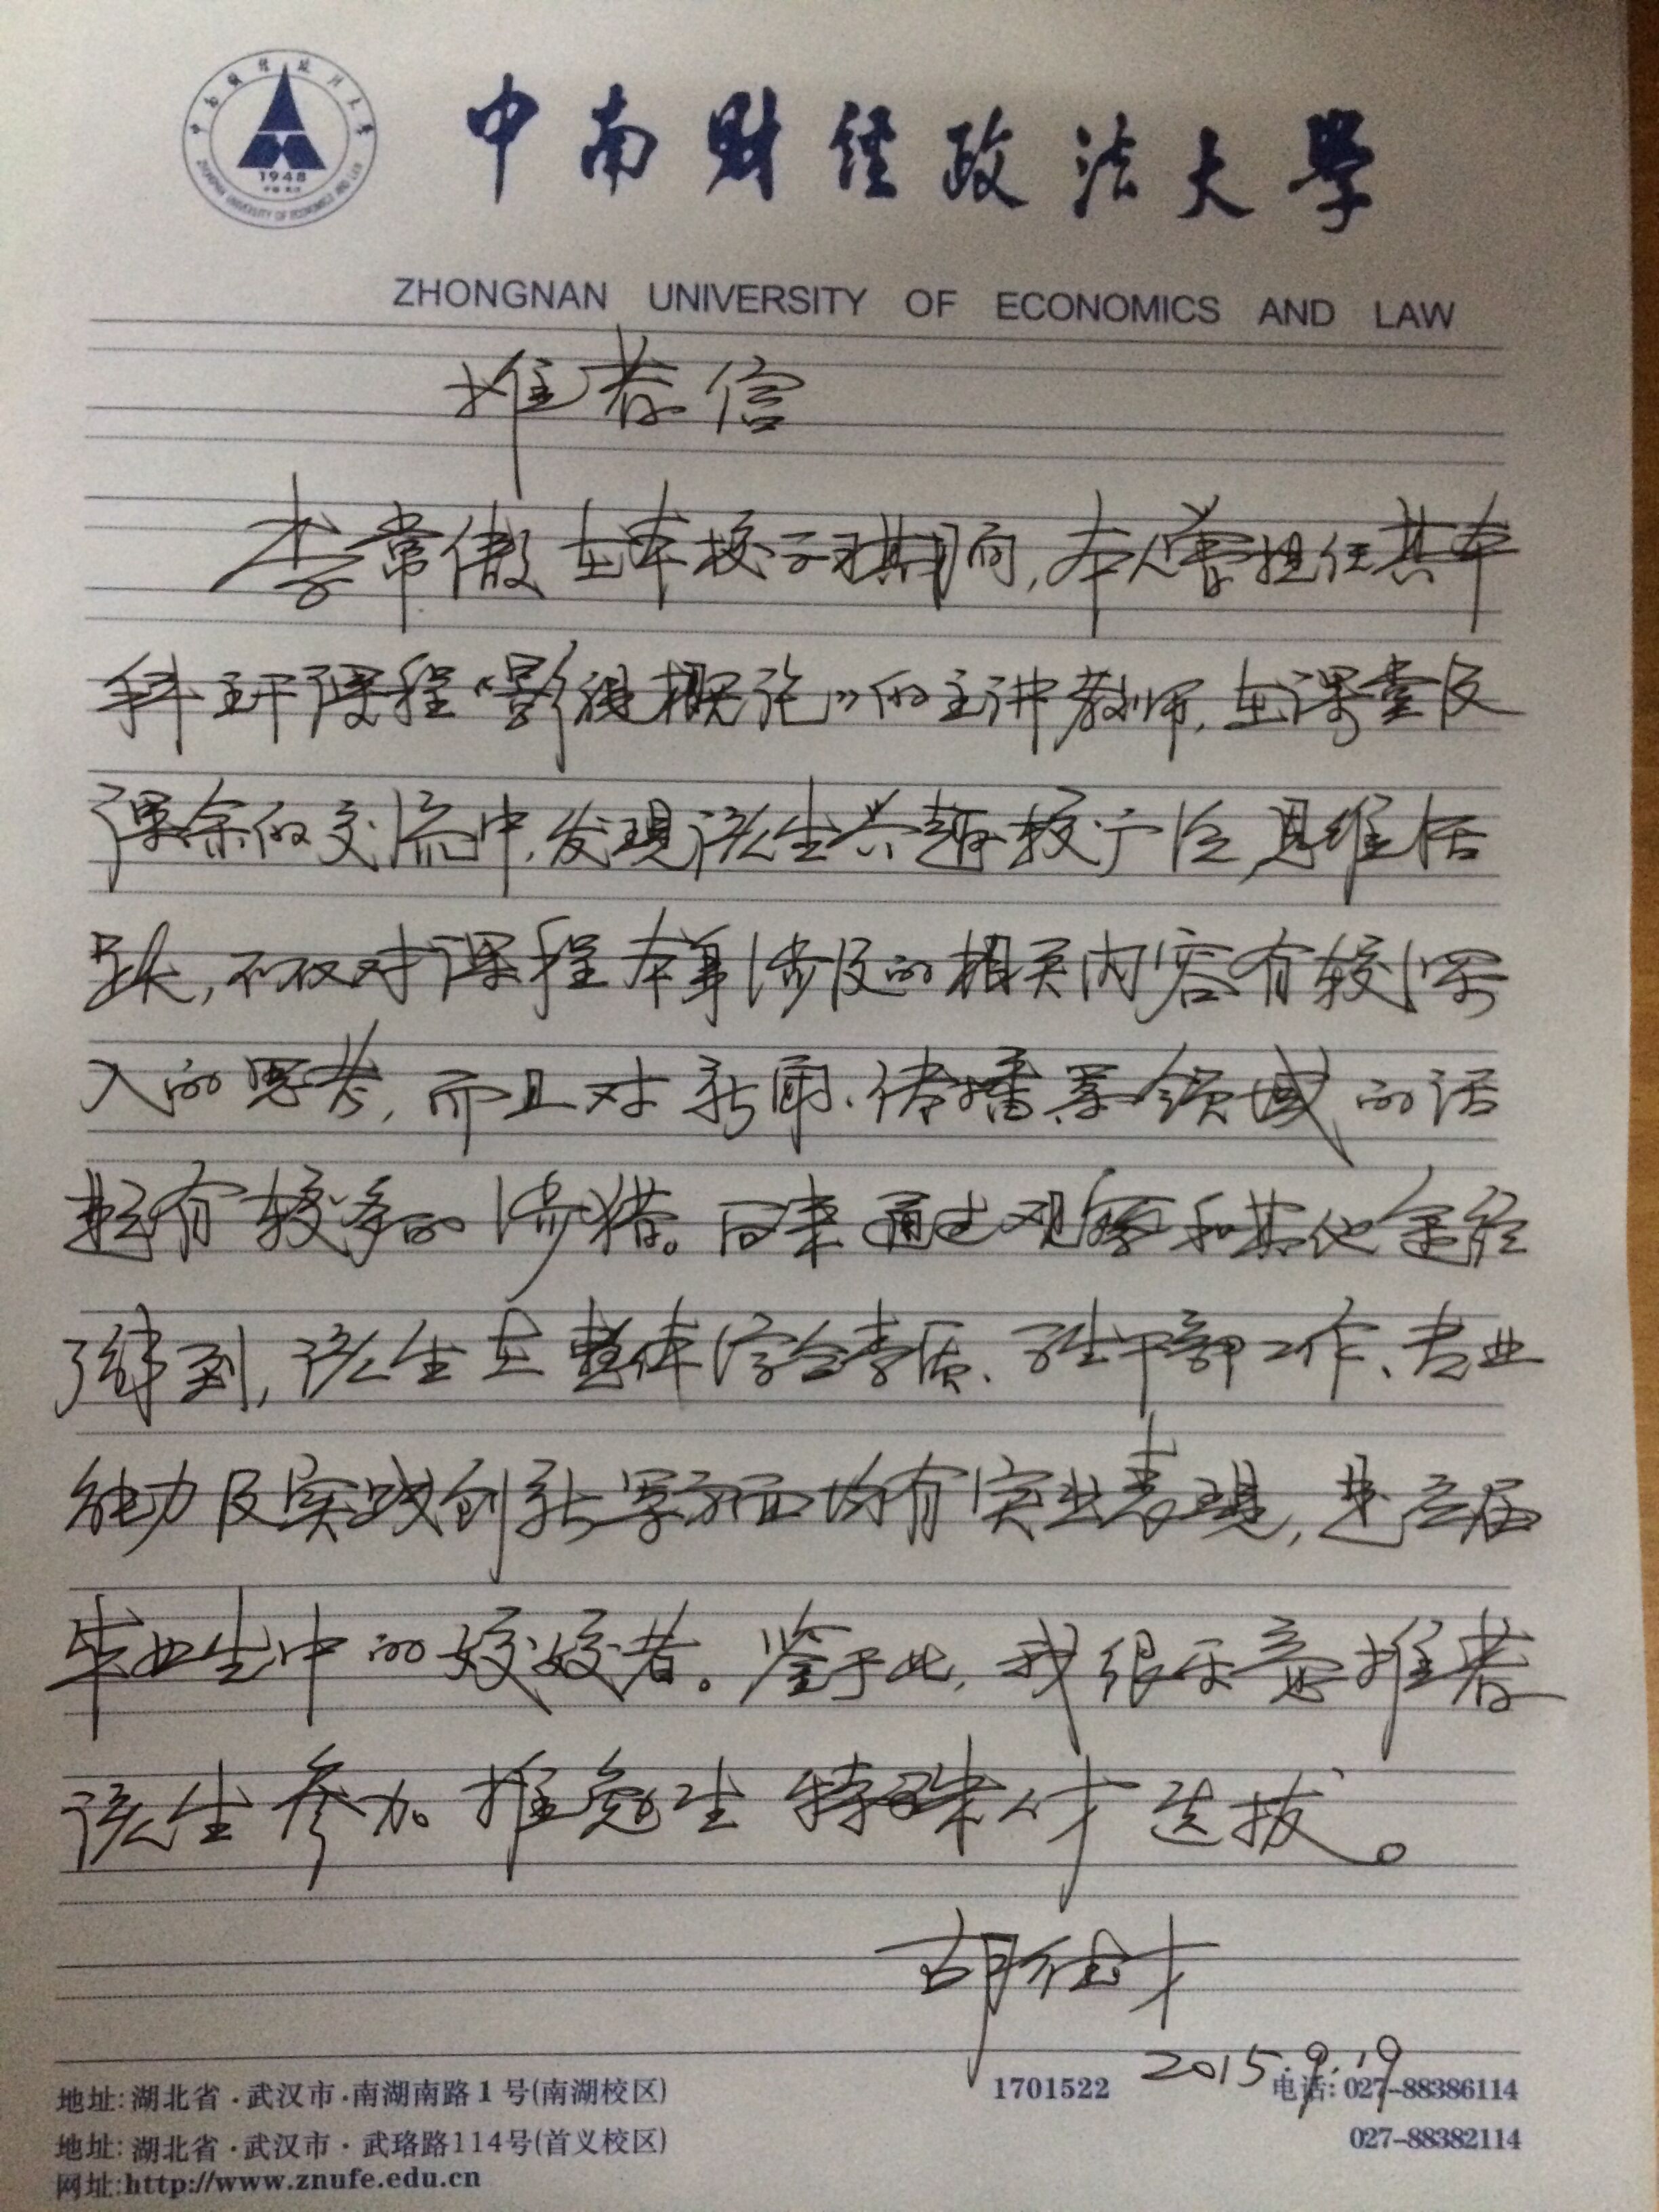 中南财经政法大学
1948
ZHONGNAN UNIVERSITY OF ECONOMICS AND LAW
中南財經政法大學
ZHONGNAN UNIVERSITY OF ECONOMICS AND LAW
推荐信
李常傲在本校学习期间,本人曾担任其本
科主干课程“影视概论”的主讲教师,在课堂及
课余的交流中,发现该生兴趣较广泛,思维活
跃,不仅对课程本身涉及的相关内容有较深
入的思考,而且对新闻、传播等领域的话
题有较多的涉猎。同来通过观察和其他途径
了解到,该生在整体综合素质、学生干部工作、专业
能力及实践创新等方面均有突出表现,是应届
毕业生中的姣姣者。鉴于此,我很乐意推荐
该生参加推免生特殊人才选拔。
胡德才
2015.9.19
地址:湖北省·武汉市·南湖南路1号(南湖校区)
1701522
电话:027-88386114
地址:湖北省·武汉市·武珞路114号(首义校区)
027-88382114
网址:http://www.znufe.edu.cn